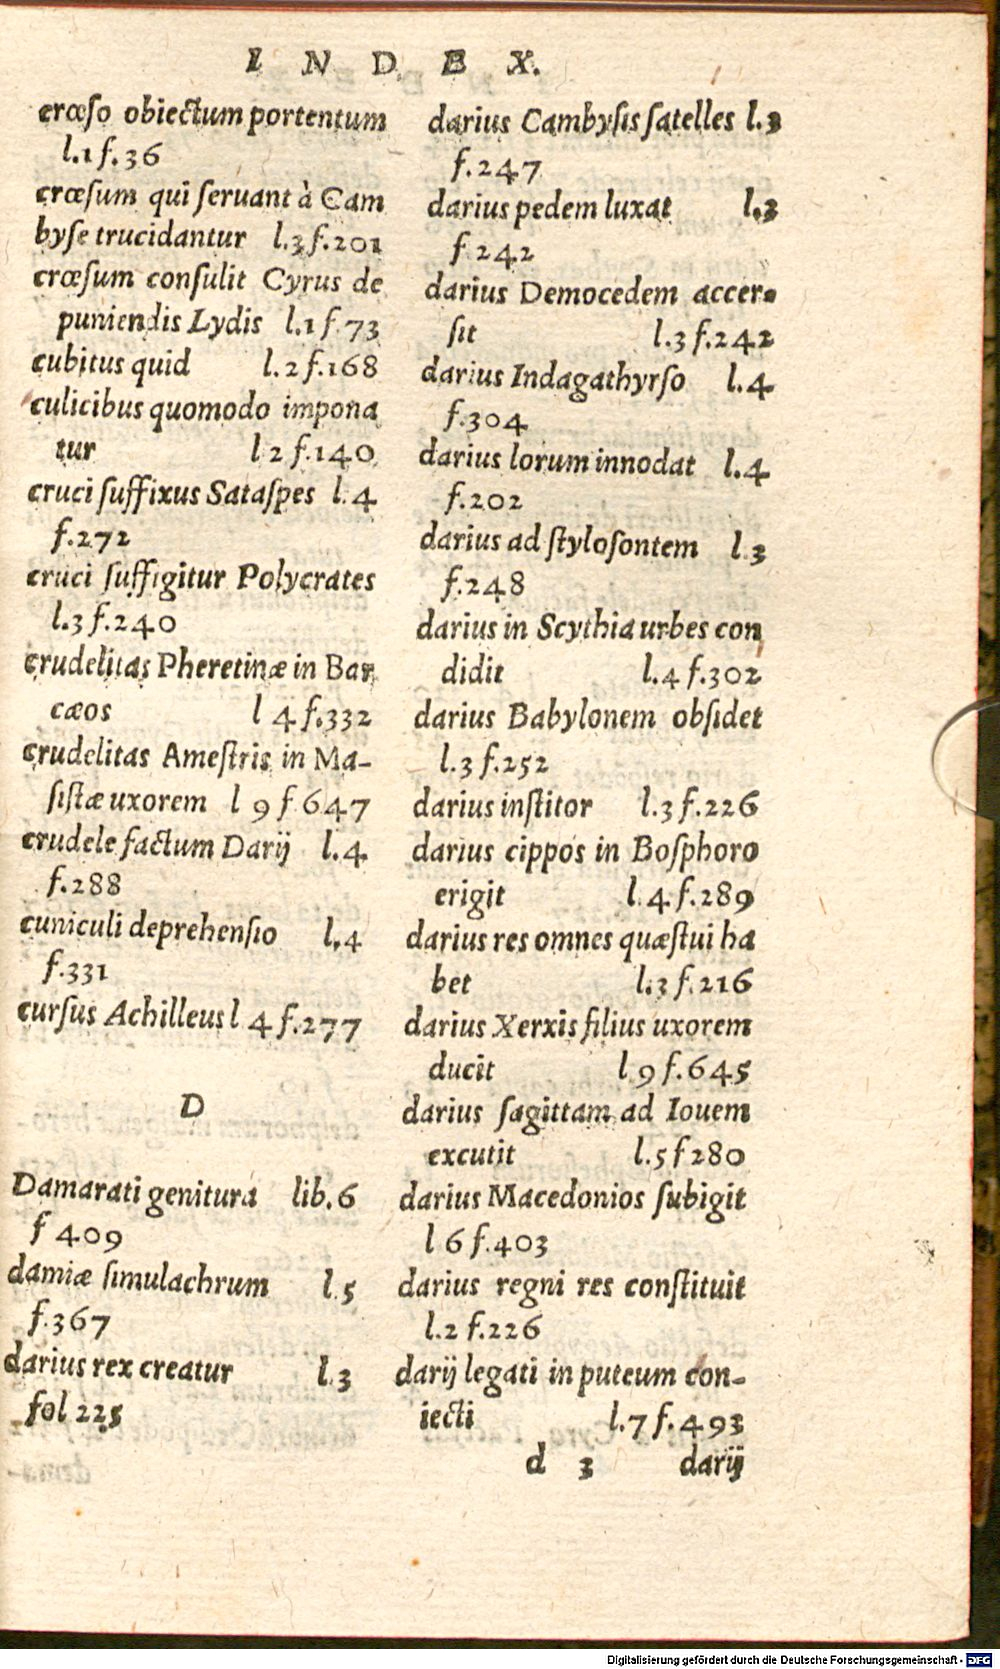 I N D E X.
crœso obiectum portentum
l.1 f.36
crœsum qui seruant à Cam
byse trucidantur l.3 f.201
crœsum consulit Cyrus de
puniendis Lydis l.1 f.73
cubitus quid l.2 f.168
culicibus quomodo impona
tur l 2 f.140
cruci suffixus Sataspes l.4
f.272
cruci suffigitur Polycrates
l.3 f.240
crudelitas Pheretinæ in Bar
cæos l 4 f.332
crudelitas Amestris in Ma-
sistæ uxorem l 9 f 647
crudele factum Darij l.4
f.288
cuniculi deprehensio l.4
f.331
cursus Achilleus l 4 f.277
D
Damarati genitura lib.6
f 409
damiæ simulachrum l.5
f.367
darius rex creatur l.3
fol 225
darius Cambysis satelles l.3
f.247
darius pedem luxat l.3
f 242
darius Democedem accer-
sit l.3 f.242
darius Indagathyrso l.4
f.304
darius lorum innodat l.4
f.202
darius ad stylosontem l.3
f.248
darius in Scythia urbes con
didit l.4 f.302
darius Babylonem obsidet
l.3 f.252
darius institor l.3 f.226
darius cippos in Bosphoro
erigit l.4 f.289
darius res omnes quæstui ha
bet l.3 f.216
darius Xerxis filius uxorem
ducit l 9 f.645
darius sagittam ad Iouem
excutit l.5 f 280
darius Macedonios subigit
l 6 f.403
darius regni res constituit
l.2 f.226
darij legati in puteum con-
iecti l.7 f.493
d 3 darij
Digitalisierung gefördert durch die Deutsche Forschungsgemeinschaft - DFG